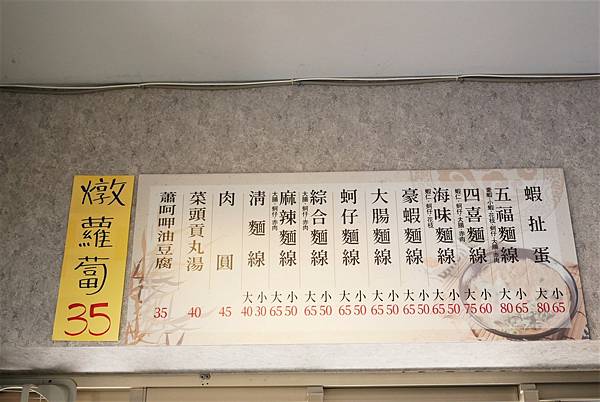 蝦扯蛋 大80 小65
五福麵線 大80 小65
四喜麵線 蝦仁·蚵仔·大腸·赤肉 大75 小60
海味麵線 蝦仁·蚵仔·花枝 大65 小50
豪蝦麵線 大65 小50
大腸麵線 大65 小50
蚵仔麵線 大65 小50
綜合麵線 大腸·蚵仔·赤肉 大65 小50
麻辣麵線 大腸·蚵仔·赤肉 大65 小50
清麵線 大40 小30
肉圓 45
菜頭貢丸湯 40
蕭呵呷油豆腐 35
燉蘿蔔
35